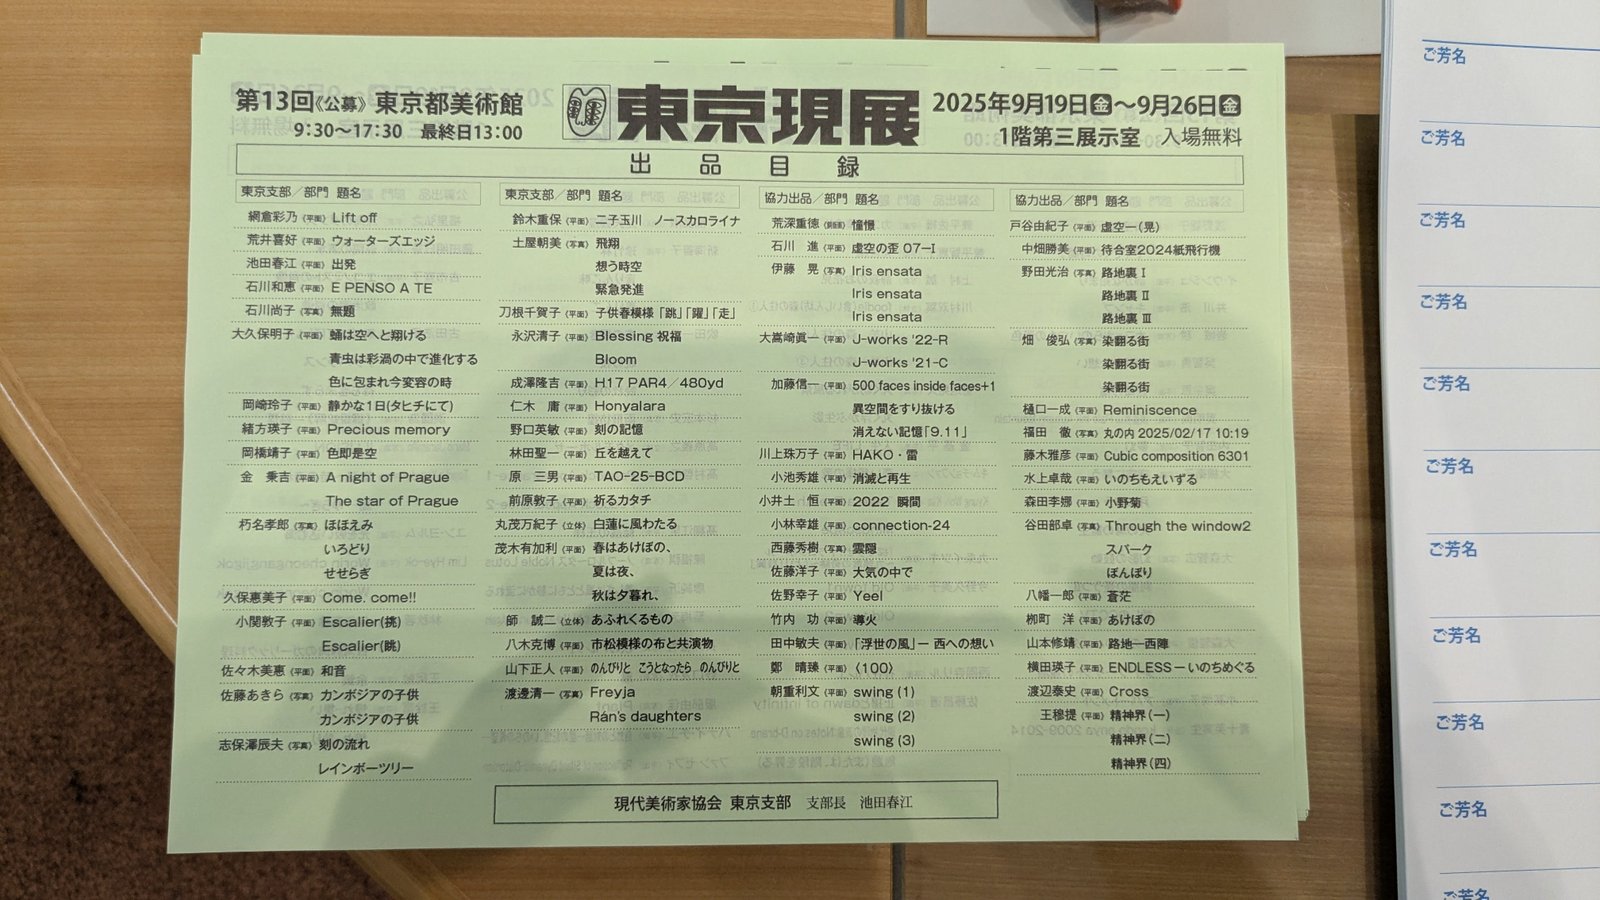 第13回《公募》東京都美術館
9:30～17:30 最終日13:00
東京現展
2025年9月19日㊎～9月26日㊎
1階第三展示室 入場無料
出品目録
東京支部／部門 題名
網倉彩乃（平面）Lift off
荒井喜好（平面）ウォーターズエッジ
池田春江（平面）出発
石川和恵（平面）E PENSO A TE
石川尚子（写真）無題
大久保明子（平面）蛹は空へと翔ける
青虫は彩渦の中で進化する
色に包まれ今変容の時
岡崎玲子（平面）静かな1日(タヒチにて)
緒方瑛子（平面）Precious memory
岡橋靖子（平面）色即是空
金 秉吉（平面）A night of Prague
The star of Prague
朽名孝郎（写真）ほほえみ
いろどり
せせらぎ
久保惠美子（平面）Come. come!!
小関敦子（平面）Escalier(挑)
Escalier(眺)
佐々木美惠（平面）和音
佐藤あきら（写真）カンボジアの子供
カンボジアの子供
志保澤辰夫（写真）刻の流れ
レインボーツリー
東京支部／部門 題名
鈴木重保（平面）二子玉川 ノースカロライナ
土屋朝美（写真）飛翔
想う時空
緊急発進
刀根千賀子（平面）子供春模様「跳」「躍」「走」
永沢清子（平面）Blessing 祝福
Bloom
成澤隆吉（平面）H17 PAR4／480yd
仁木 庸（平面）Honyalara
野口英敏（平面）刻の記憶
林田聖一（平面）丘を越えて
原 三男（平面）TAO-25-BCD
前原敦子（平面）祈るカタチ
丸茂万紀子（立体）白蓮に風わたる
茂木有加利（平面）春はあけぼの、
夏は夜、
秋は夕暮れ、
師 誠二（立体）あふれくるもの
八木克博（平面）市松模様の布と共演物
山下正人（平面）のんびりと こうとなったら のんびりと
渡邊清一（写真）Freyja
Rán's daughters
協力出品／部門 題名
荒深重徳 憧憬
石川 進（平面）虚空の歪 07-I
伊藤 晃（写真）Iris ensata
Iris ensata
Iris ensata
大嵩崎眞一（平面）J-works '22-R
J-works '21-C
加藤信一（平面）500 faces inside faces+1
異空間をすり抜ける
消えない記憶「9.11」
川上珠万子（平面）HAKO・雷
小池秀雄（平面）消滅と再生
小井土 恒（平面）2022 瞬間
小林幸雄（平面）connection-24
西藤秀樹（写真）雲隠
佐藤洋子（平面）大気の中で
佐野幸子（平面）Yeel
竹内 功（平面）導火
田中敏夫（平面）「浮世の風」－ 西への想い
鄭 晴臻（平面）〈100〉
朝重利文（平面）swing (1)
swing (2)
swing (3)
協力出品／部門 題名
戸谷由紀子（平面）虚空－(晃)
中畑勝美（平面）待合室2024紙飛行機
野田光治（写真）路地裏 I
路地裏 II
路地裏 III
畑 俊弘（写真）染翻る街
染翻る街
染翻る街
樋口一成（平面）Reminiscence
福田 徹（写真）丸の内 2025/02/17 10:19
藤木雅彦（平面）Cubic composition 6301
水上卓哉（平面）いのちもえいずる
森田李娜（平面）小野菊
谷田部卓（写真）Through the window2
スパーク
ぼんぼり
八幡一郎（平面）蒼茫
栁町 洋（平面）あけぼの
山本修靖（平面）路地－西陣
横田瑛子（平面）ENDLESS－いのちめぐる
渡辺泰史（平面）Cross
王穆提（平面）精神界(一)
精神界(二)
精神界(四)
現代美術家協会 東京支部 支部長 池田春江
ご芳名
ご芳名
ご芳名
ご芳名
ご芳名
ご芳名
ご芳名
ご芳名
ご芳名
ご芳名
ご芳名